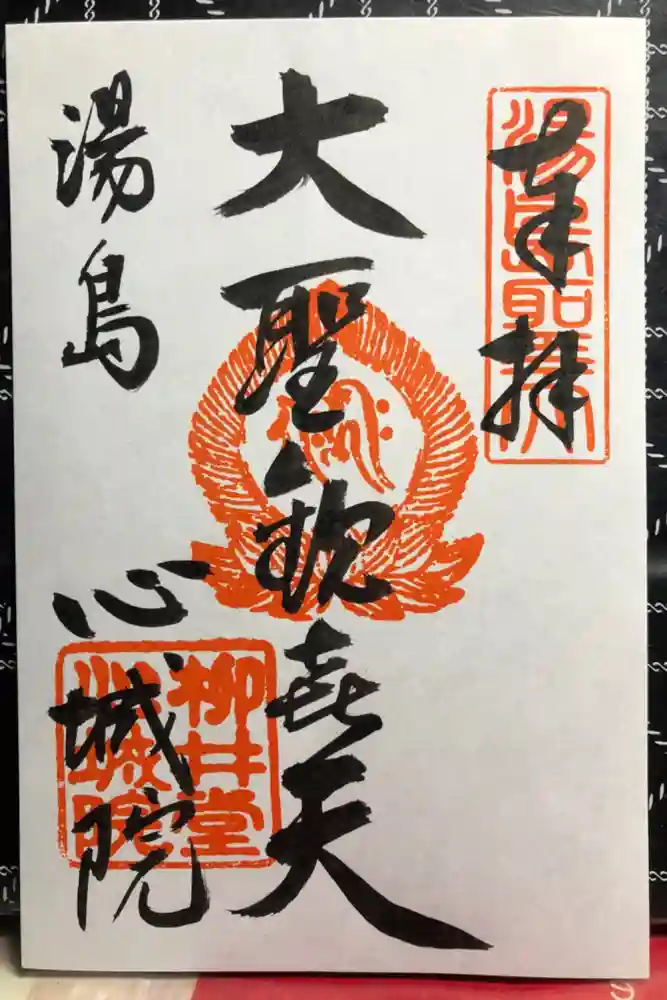 奉拝
湯島
大聖歓喜天
湯島
心城院
柳井堂
心城院